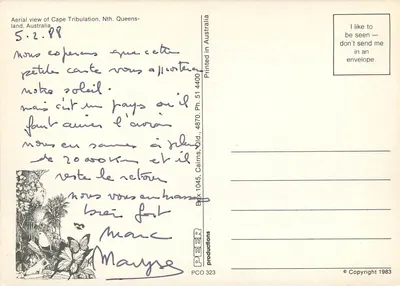 Aerial view of Cape Tribulation, Nth. Queens-
land, Australia
5.2.88
nous espérons que cette
petite carte vous apportera
notre soleil.
mais c'est un pays où il
faut aimer l'avion
nous en sommes à plus
de 20000 Km et il
reste le retour
nous vous embrassons
bien fort
Marc
Maryse
Printed in Australia
Box 1045, Cairns, Qld., 4870. Ph. 51 4400
PEER
productions
PCO 323
I like to
be seen —
don't send me
in an
envelope.
© Copyright 1983